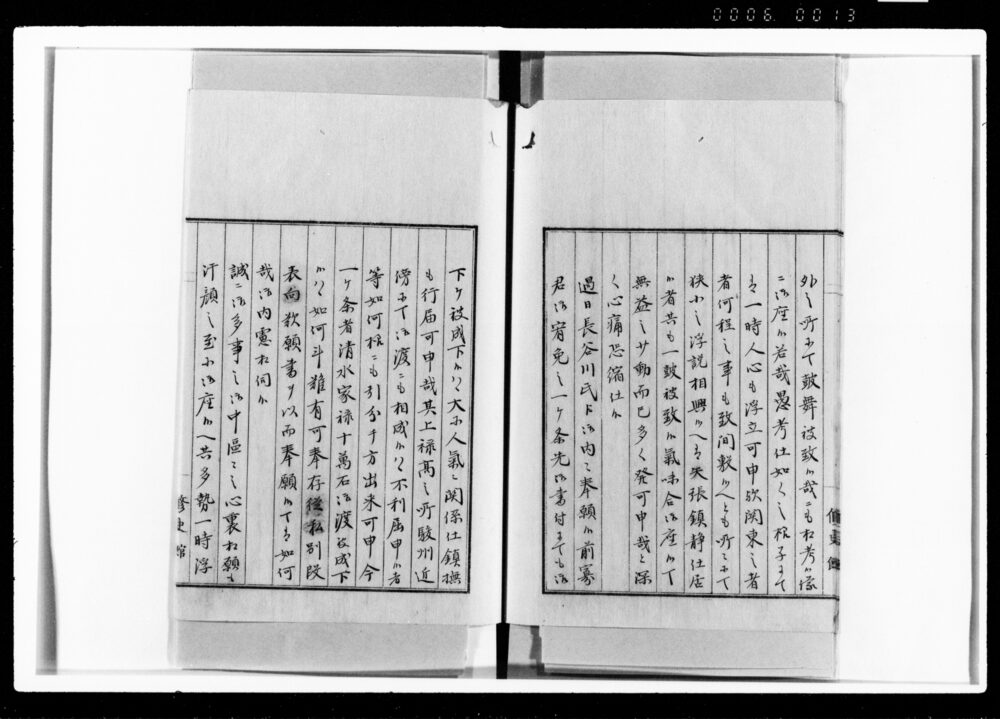 0006 0013
外之所ニて鼓舞被致候哉ニも相考候様
ニ御座候若哉愚考仕如く之振合ニて
者一時人心も浮立可申歟関東之者
者何程之事も致間敷候へとも所ニて
狭小之浮説相興候へ者矢張鎮静仕居
候者共も一鼓被致候気味合御座候て
無益之サ動而已多く発可申哉と深
く心痛恐縮仕候
過日長谷川氏ト御内々奉願候前寡
君御宥免之一ケ条先御書付ニても御
修史館
下ケ被成下候ハヽ大ニ人氣ニ関係仕鎮撫
も行届可申哉其上禄高之所駿州近
傍ニて御渡ニも相成候ハヽ不利屈申候者
等如何様ニも引分ケ方出来可申今
一ケ条者清水家禄十萬石御渡被成下
候ハヽ如何斗難有可奉存候私別段
表向歎願書ヲ以而奉願候てハ如何
哉御内慮相伺候
誠ニ御多事之御中區々之心裏相願も
汗顔之至ニ御座候へ共多勢一時浮
修史館